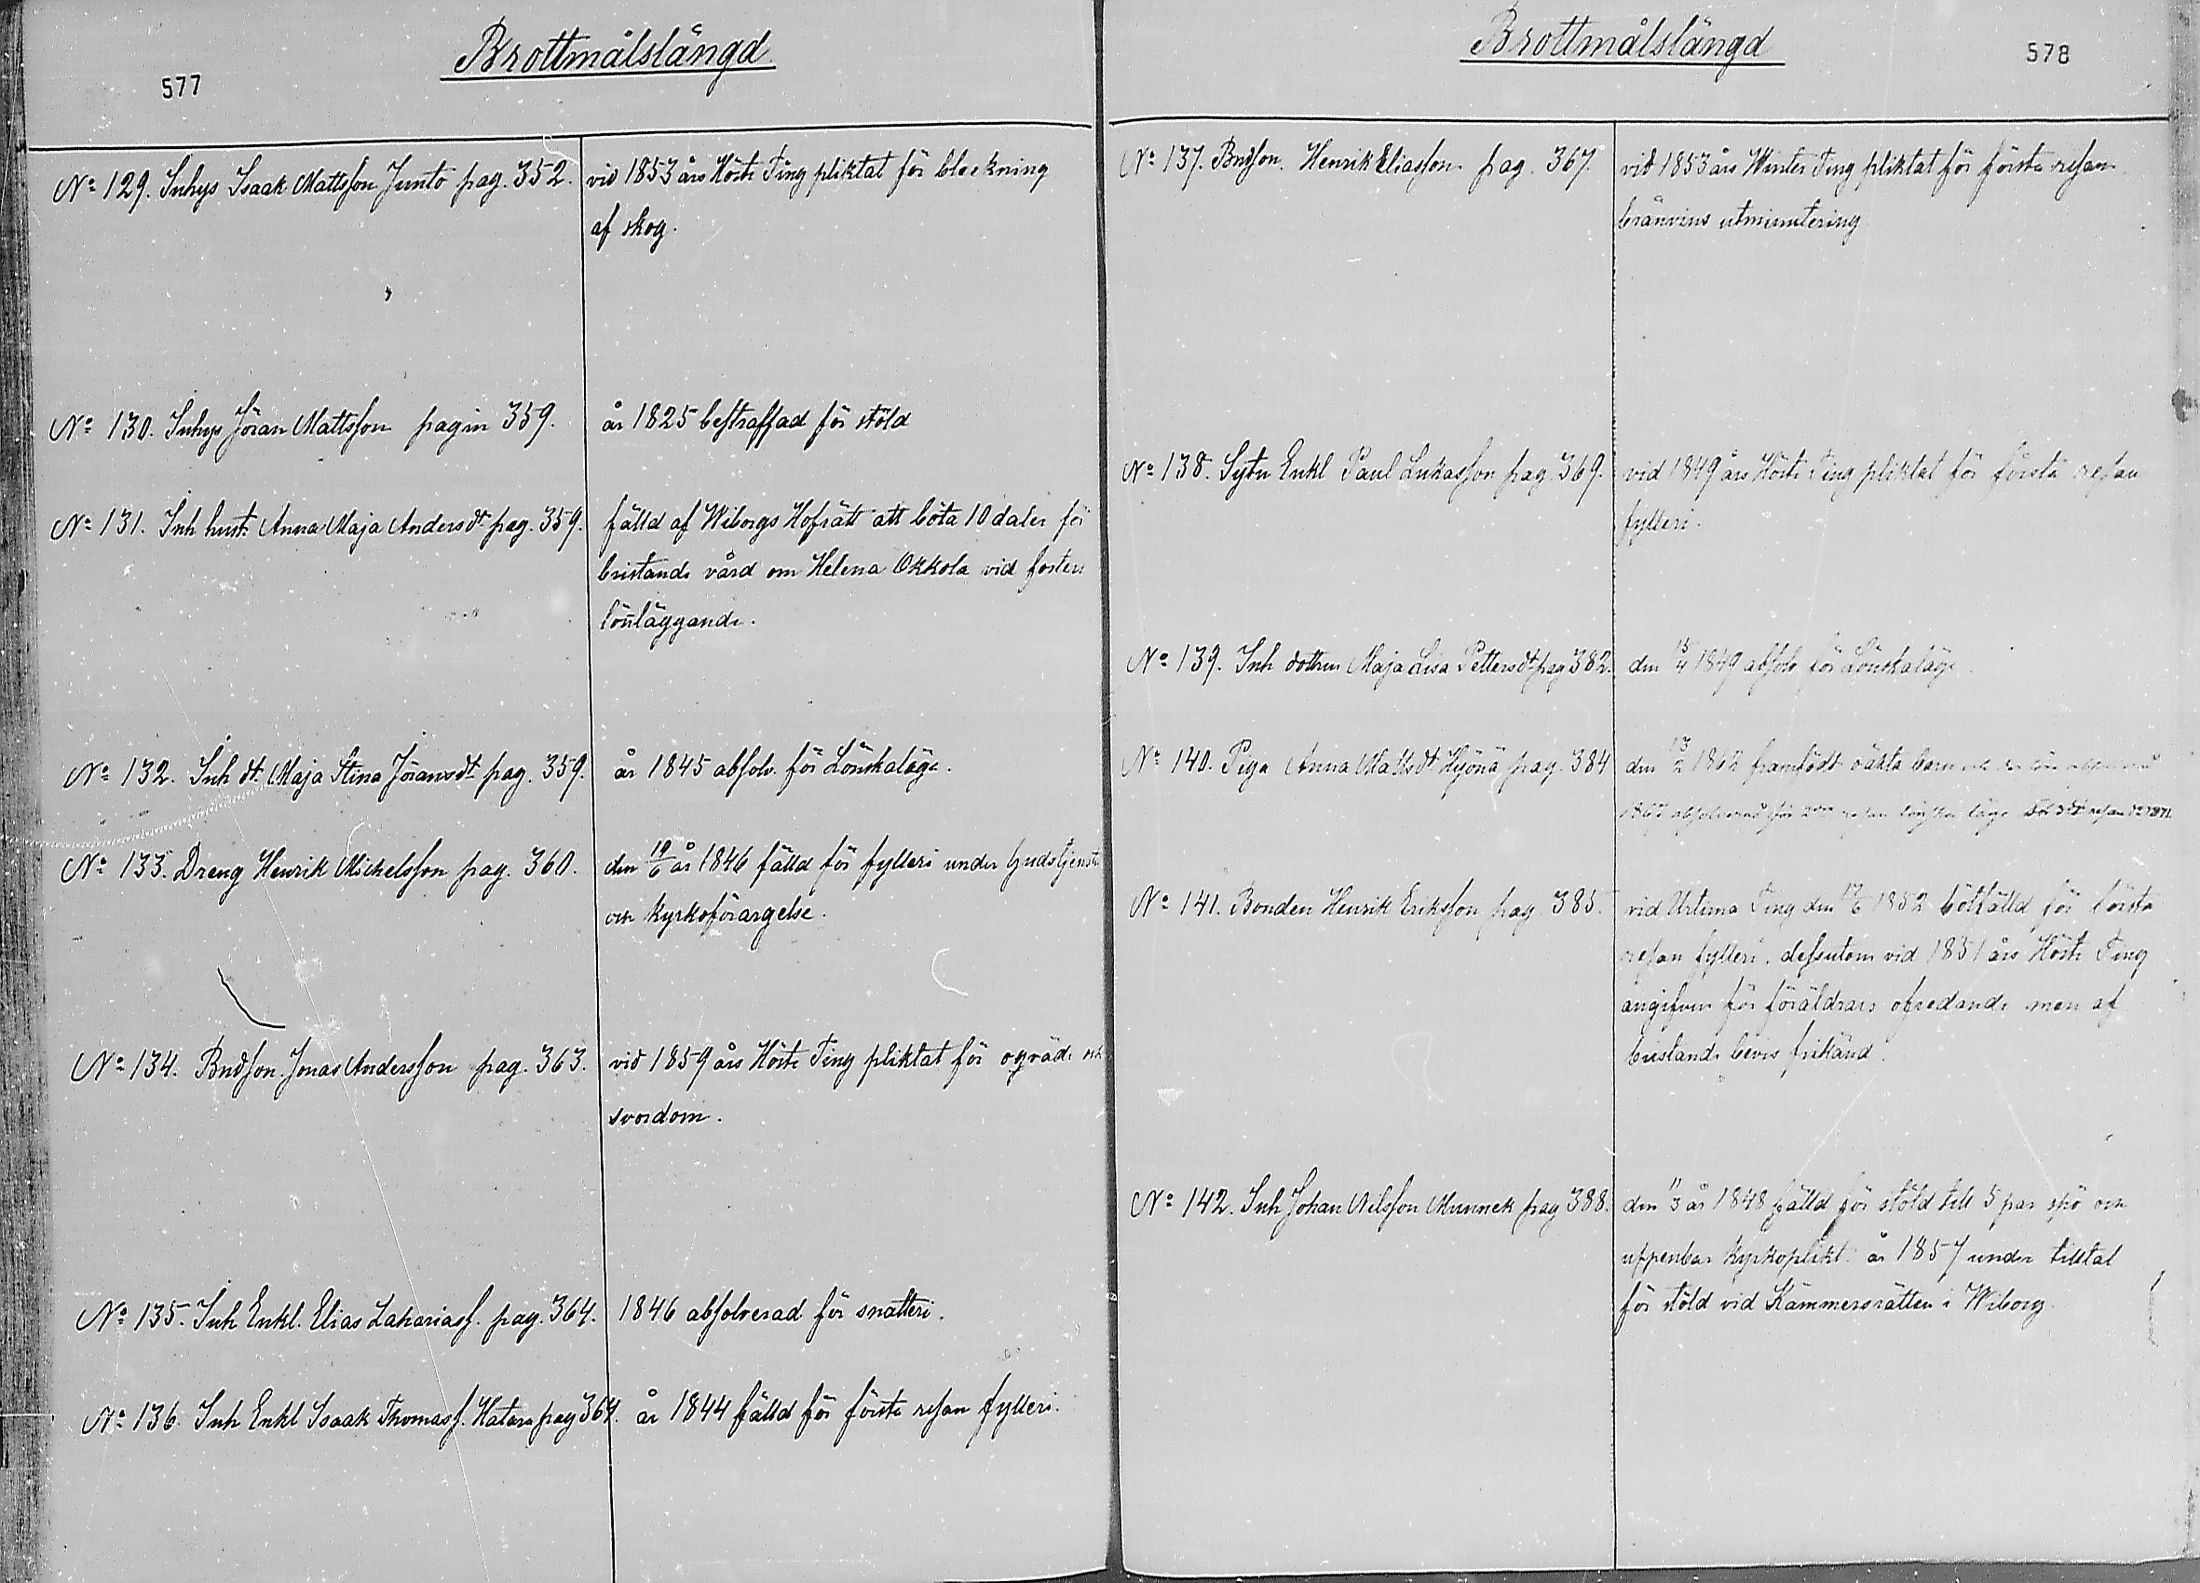 577
Brottmålslängd
No 129. Inhys Isaak Mattsson Junto pag. 352. vid 1853 års Höste Ting pliktat för bleckning
af skog.
No 130. Inhys Jöran Mattsson pagin 359. år 1825 bestraffad för stöld
No 131. Inh hust. Anna Maja Andersdr pag. 359. fälld af Wiborgs Hofrätt att böta 10 daler för
bristande vård om Helena Okkola vid fosters
lönläggande.
No 132. Inh dt. Maja Stina Jöransdt. pag. 359. år 1845 absolv. för Lönskaläge.
No 133. Dreng Henrik Michelsson pag. 360. den 19/6 år 1846 fälld för fylleri under Gudstjenst
och kyrkoförargelse.
No 134. Bndson. Jonas Andersson pag. 363. vid 1859 års Höste Ting pliktat för oqväde och
svordom.
No 135. Inh Enkl. Elias Zachariass. pag. 364. 1846 absolverad för snatteri.
No 136. Inh Enkl Isaak Thomass. Hatara pag 364. år 1844 fälld för första resan fylleri.
Brottmålslängd
578
No 137. Bndson. Henrik Eliasson pag. 367. vid 1853 års Winter Ting pliktat för första resan
bränvins utminutering
No 138. Sytn Enkl Paul Lukasson pag. 369. vid 1849 års Höste Ting pliktat för första resan
fylleri.
No 139. Inh dottren Maja Lisa Pettersdt pag 382. den 15/4 1849 absolv för Lönskaläge
No 140. Piga Anna Mattsdt Hyönä pag. 384 den 13/2 1862 framfödt oäkta barn
1867 absolverad för 2dra resan lönska läge För 3dje resan 1871.
No 141. Bonden Henrik Eriksson pag. 385. vid Urtima Ting den 1852 bötfälld för första
resan fylleri. dessutom vid 1851 års Höste Ting
angifven för föräldrars ofredande men af
bristande bevis frikänd.
No 142. Inh Johan Nilsson Munnek pag 388. den 11/3 år 1848 fälld för stöld till 5 par spö och
uppenbar kyrkoplikt. år 1857 under tilltal
för stöld vid Kämmersrätten i Wiborg